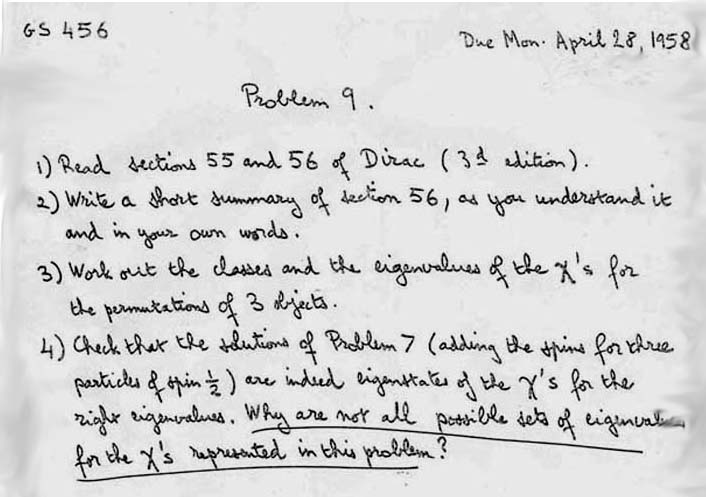 GS 456
Due Mon. April 28, 1958
Problem 9.
1) Read sections 55 and 56 of Dirac (3d edition).
2) Write a short summary of section 56, as you understand it
and in your own words.
3) Work out the classes and the eigenvalues of the χ's for
the permutations of 3 objects.
4) Check that the solutions of Problem 7 (adding the spins for three
particles of spin ½) are indeed eigenstates of the χ's for the
right eigenvalues. Why are not all possible sets of eigenval
for the χ's represented in this problem?